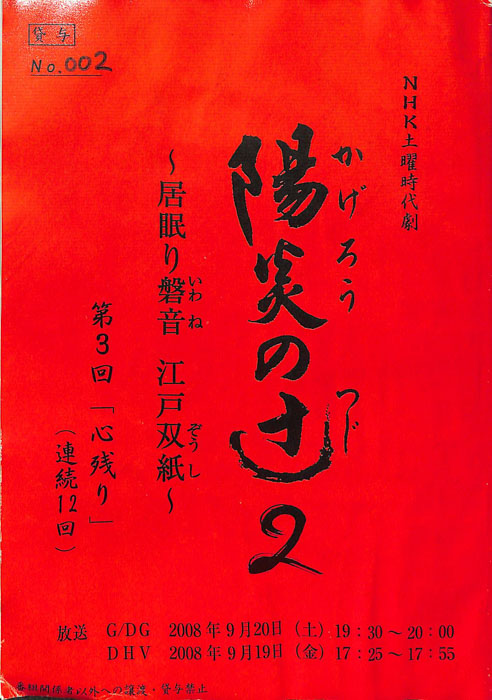 貸与
No.002
NHK土曜時代劇
かげろう つじ
陽炎の辻2
～居眠り磐音 江戸双紙～
いわ ね ぞうし
第3回「心残り」
（連続12回）
放送 G/DG 2008年9月20日（土）19：30～20：00
DHV 2008年9月19日（金）17：25～17：55
番組関係者以外への譲渡・貸与禁止